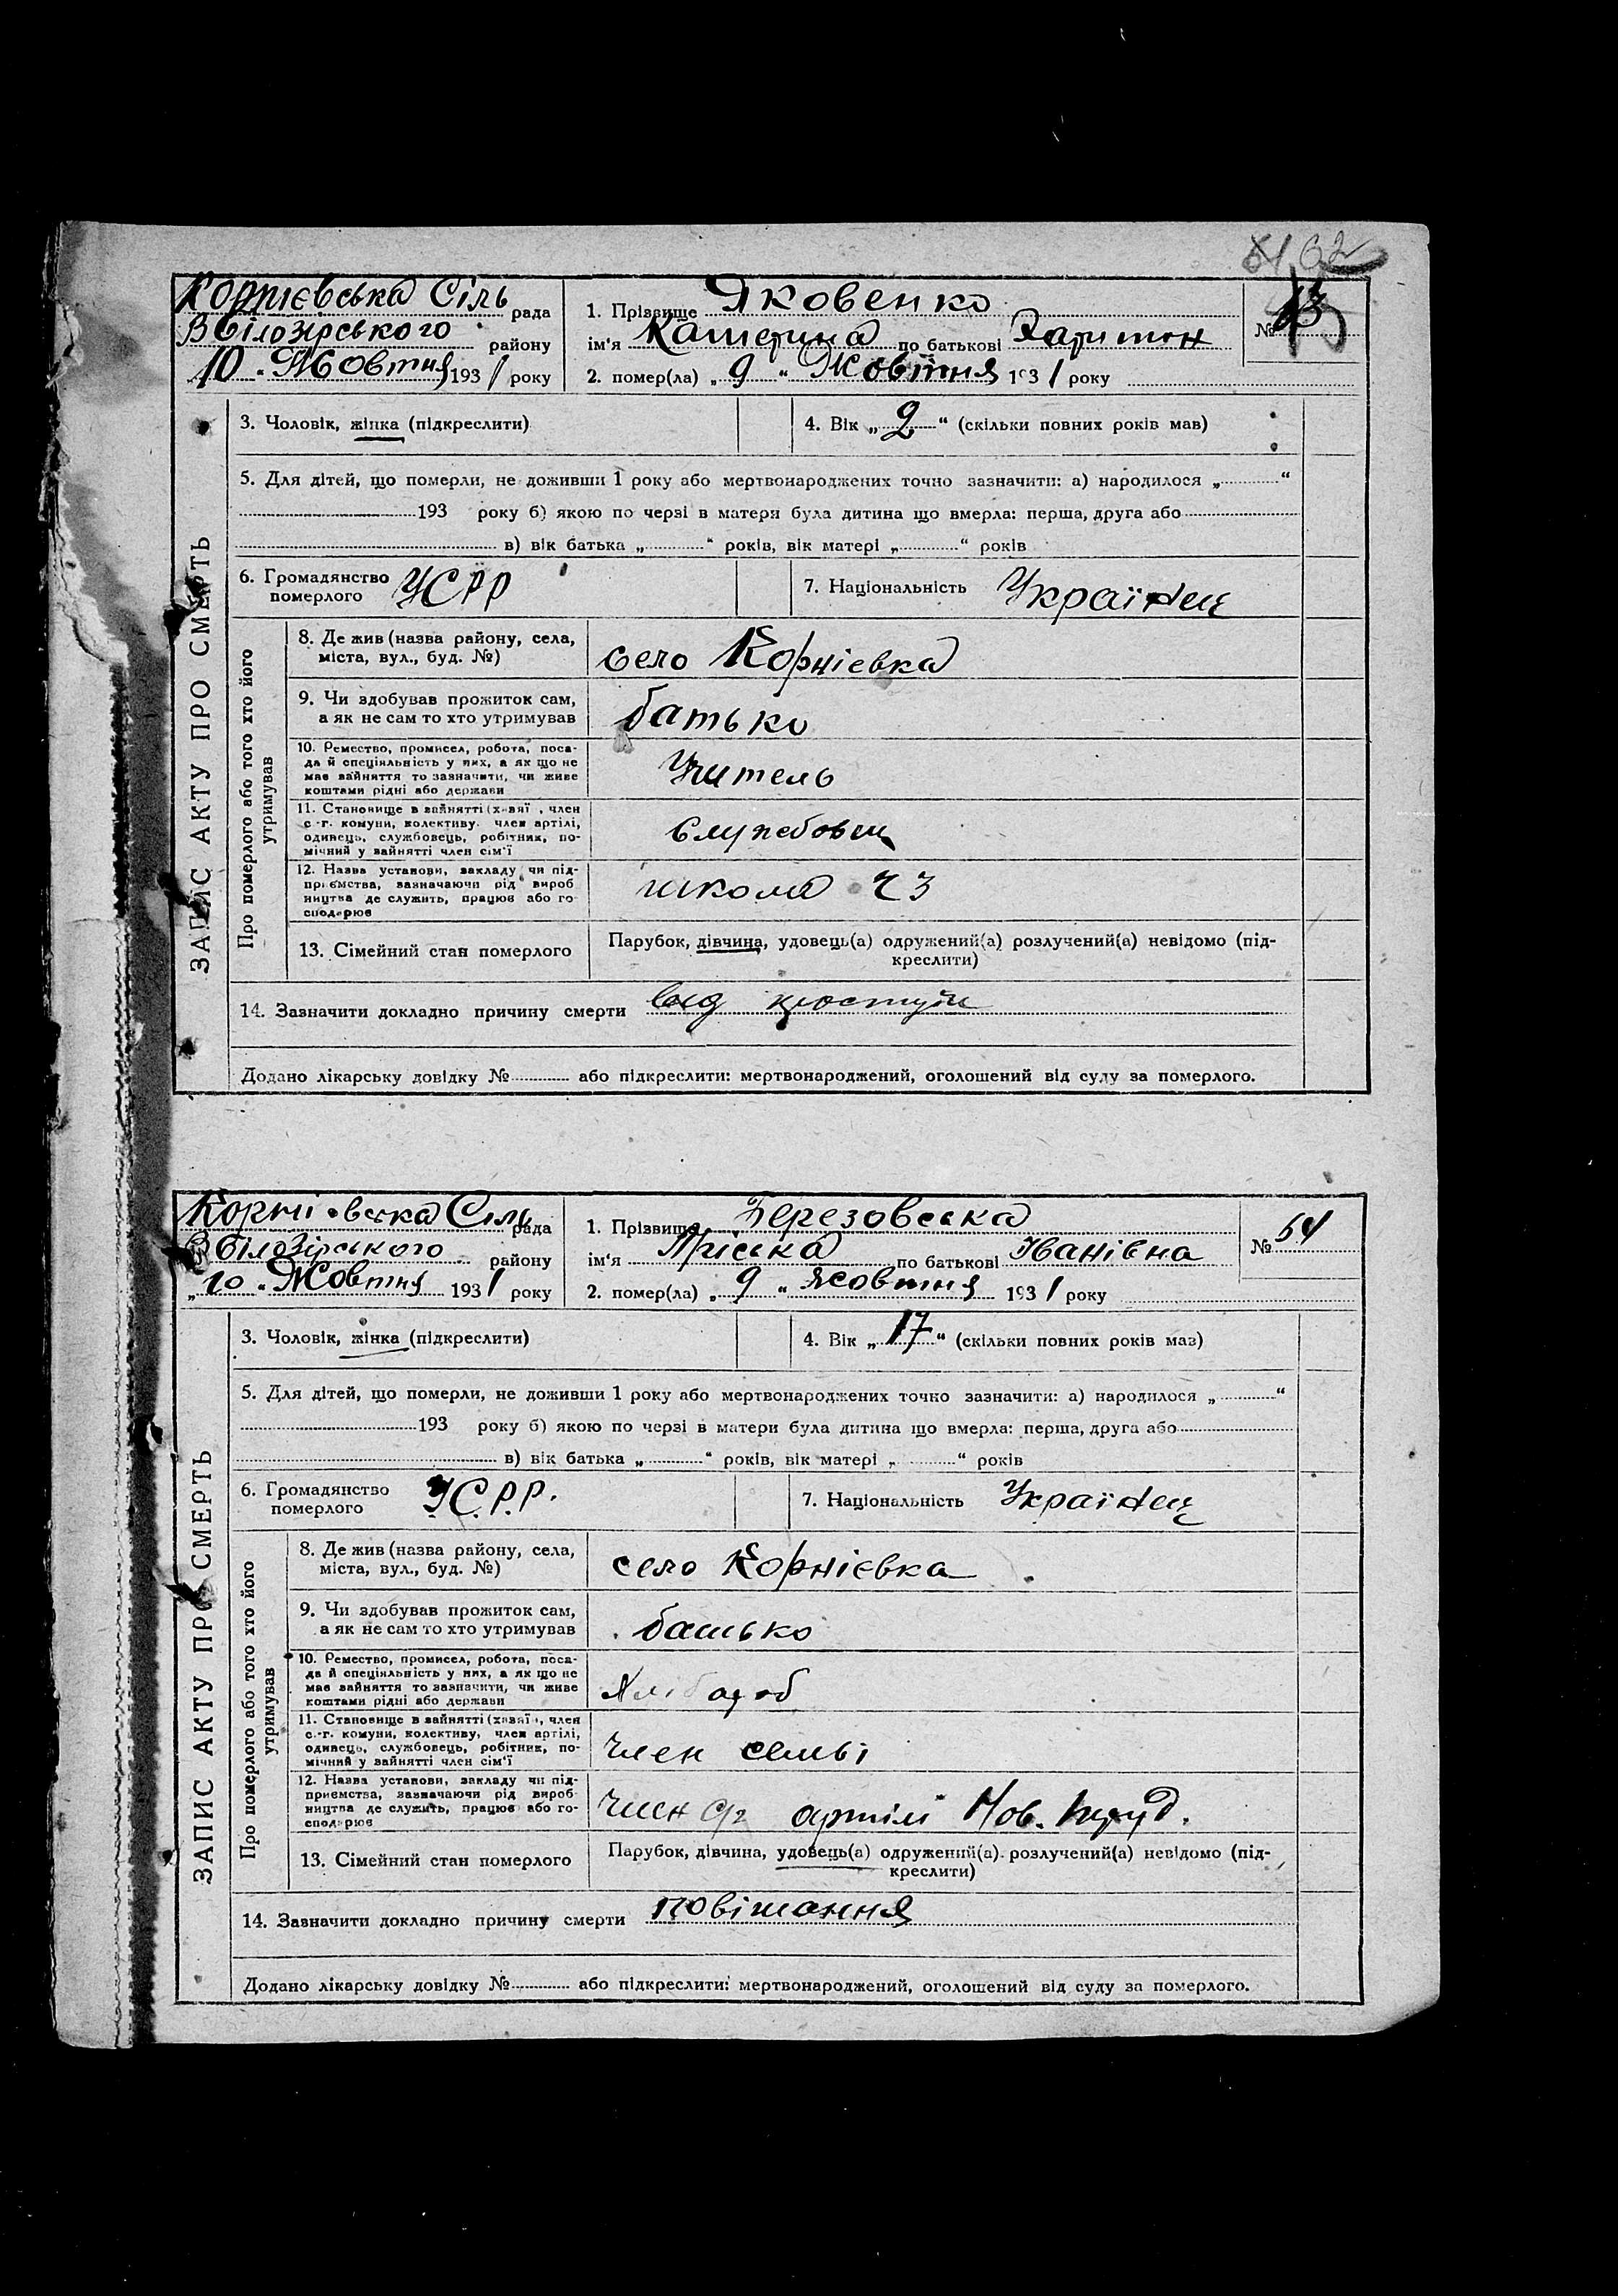 62
Корнієвська Сіль рада
В Білозірського району
„10„ Жовтня 1931 року
1. Прізвище Яковенко
ім'я Катерина по батькові Харитон
2. помер(ла) „9“ Жовтня 1931 року
№
ЗАПИС АКТУ ПРО СМЕРТЬ
3. Чоловік, жінка (підкреслити)
4. Вік „2“ (скільки повних років мав)
5. Для дітей, що померли, не доживши 1 року або мертвонароджених точно зазначити: а) народилося „ “
193 року б) якою по черзі в матери була дитина що вмерла: перша, друга або
в) вік батька „ “ років, вік матері „ “ років
6. Громадянство померлого УСРР
7. Національність Українец
Про померлого або того хто його утримував
8. Де жив (назва району, села,
міста, вул., буд. №)
село Корнієвка
9. Чи здобував прожиток сам,
а як не сам то хто утримував
батько
10. Ремество, промисел, робота, поса-
да й спеціяльність у них, а як що не
має зайняття то зазначити, чи живе
коштами рідні або держави
Учитель
11. Становище в зайнятті (хазяї , член
с.-г. комуни, колективу, член артілі,
одинець, службовець, робітник, по-
мічний у зайнятті член сім'ї
Службовец
12. Назва установи, закладу чи під-
приємства, зазначаючи рід вироб
ництва де служить, працює або го
сподарює
школа
13. Сімейний стан померлого
Парубок, дівчина, удовець(а) одружений(а) розлучений(а) невідомо (під-
креслити)
14. Зазначити докладно причину смерти
Додано лікарську довідку № або підкреслити: мертвонароджений, оголошений від суду за померлого.
Корнієвська Сіль рада
В Білозірського району
„10„ Жовтня 1931 року
1. Прізвище Березовська
ім'я Пріська по батькові Іванівна
2. помер(ла) „9“ Жовтня 1931 року
№ 54
ЗАПИС АКТУ ПРО СМЕРТЬ
3. Чоловік, жінка (підкреслити)
4. Вік „17“ (скільки повних років маз)
5. Для дітей, що померли, не доживши 1 року або мертвонароджених точно зазначити: а) народилося „ “
193 року б) якою по черзі в матери була дитина що вмерла: перша, друга або
в) вік батька „ “ років, вік матері „ “ років
6. Громадянство померлого У.С.Р.Р.
7. Національність Українец
Про померлого або того хто його утримував
8. Де жив (назва району, села,
міста, вул., буд. №)
село Корнієвка
9. Чи здобував прожиток сам,
а як не сам то хто утримував
батько
10. Ремество, промисел, робота, поса-
да й спеціяльність у них, а як що не
має зайняття то зазначити, чи живе
коштами рідні або держави
Хлібороб
11. Становище в зайнятті (хазяї , член
с.-г. комуни, колективу, член артілі,
одинець, службовець, робітник, по-
мічний у зайнятті член сім'ї
член семьі
12. Назва установи, закладу чи під-
приємства, зазначаючи рід вироб
ництва де служить, працює або го-
сподарює
член с/г артілі Нов. труд.
13. Сімейний стан померлого
Парубок, дівчина, удовець(а) одружений(а) розлучений(а) невідомо (під-
креслити)
14. Зазначити докладно причину смерти повішання
Додано лікарську довідку № або підкреслити: мертвонароджений, оголошений від суду за померлого.